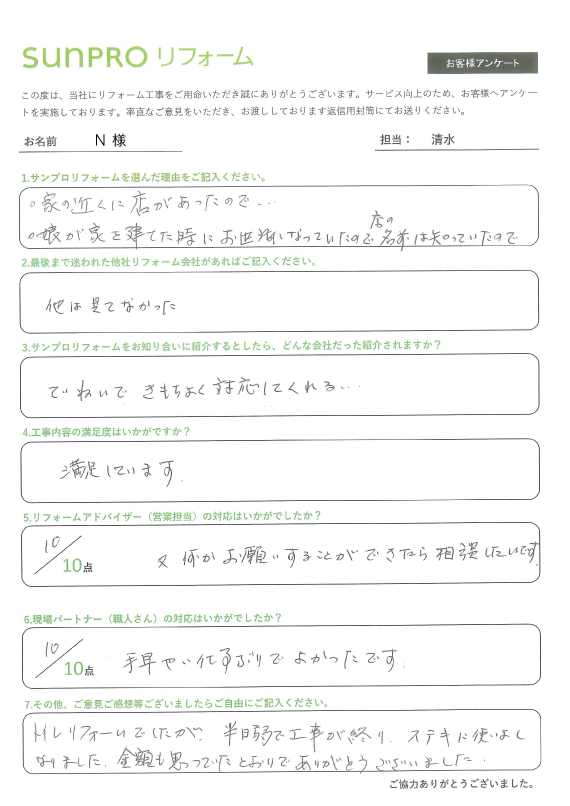 SUNPRO リフォーム
お客様アンケート
この度は、当社にリフォーム工事をご用命いただき誠にありがとうございます。サービス向上のため、お客様へアンケー
トを実施しております。率直なご意見をいただき、お渡ししております返信用封筒にてお送りください。
お名前 N 様 担当： 清水
1.サンプロリフォームを選んだ理由をご記入ください。
○家の近くに店があったので…
○娘が家を建てた時にお世話になっていたので店の名前は知っていたので
2.最後まで迷われた他社リフォーム会社があればご記入ください。
他は見てなかった
3.サンプロリフォームをお知り合いに紹介するとしたら、どんな会社だった紹介されますか？
ていねいで きもちよく対応してくれる…
4.工事内容の満足度はいかがですか？
満足しています.
5.リフォームアドバイザー（営業担当）の対応はいかがでしたか？
10/10点 又 何かお願いすることができたら相談したいです.
6.現場パートナー（職人さん）の対応はいかがでしたか？
10/10点 手早い仕事ぶりでよかったです.
7.その他、ご意見ご感想等ございましたらご自由にご記入ください。
トイレリフォームでしたが、半日弱で工事が終り、ステキに使いよく
なりました、金額も思っていたとおりでありがとうございました.
ご協力ありがとうございました。